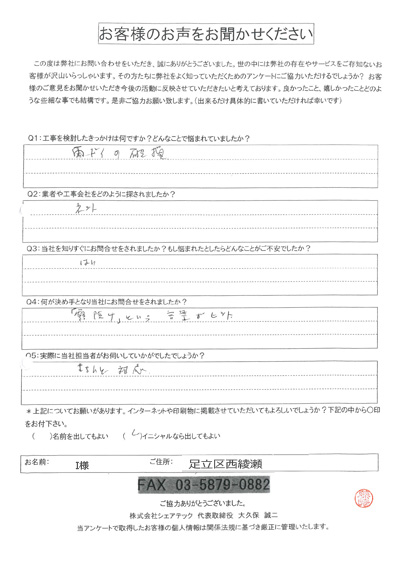 お客様のお声をお聞かせください
この度は弊社にお問い合わせをいただき、誠にありがとうございました。世の中には弊社の存在やサービスをご存知ないお
客様が沢山いらっしゃいます。その方たちに弊社をよく知っていただくためのアンケートにご協力いただけるでしょうか？お客
様のご意見をお聞かせいただき今後の活動に反映させていただきたいと考えております。良かったこと、嬉しかったことどのよ
うな些細な事でも結構です。是非ご協力お願い致します。（出来るだけ具体的に書いていただければ幸いです）
Q1:工事を検討したきっかけは何ですか？どんなことで悩まれていましたか？
雨ドイの破損
Q2:業者や工事会社をどのように探されましたか？
ネット
Q3:当社を知りすぐにお問合せをされましたか？もし悩まれたとしたらどんなことがご不安でしたか？
はい
Q4:何が決め手となり当社にお問合せをされましたか？
という 言葉がヒント
Q5:実際に当社担当者がお伺いしていかがでしたでしょうか？
きちんと 対応
＊上記についてお願いがあります。インターネットや印刷物に掲載させていただいてもよろしいでしょうか？下記の中から〇印
をお付下さい。
（　）名前を出してもよい （　）イニシャルなら出してもよい
お名前: I様 ご住所: 足立区西綾瀬
FAX 03-5879-0882
ご協力ありがとうございました。
株式会社シェアテック 代表取締役 大久保 誠二
当アンケートで取得したお客様の個人情報は関係法規に基づき厳正に管理いたします。